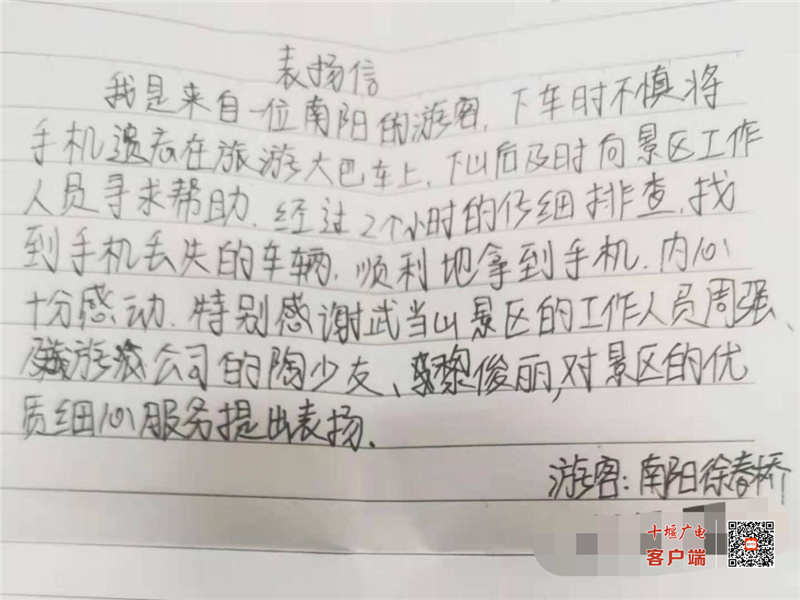 表扬信
我是来自一位南阳的游客，下车时不慎将
手机遗忘在旅游大巴车上，下山后及时向景区工作
人员寻求帮助，经过2个小时的仔细排查，找
到手机丢失的车辆，顺利地拿到手机，内心
十分感动，特别感谢武当山景区的工作人员周强、
游旅公司的陶少友、黎俊丽，对景区的优
质细心服务提出表扬。
游客：南阳徐春桥
十堰广电
客户端